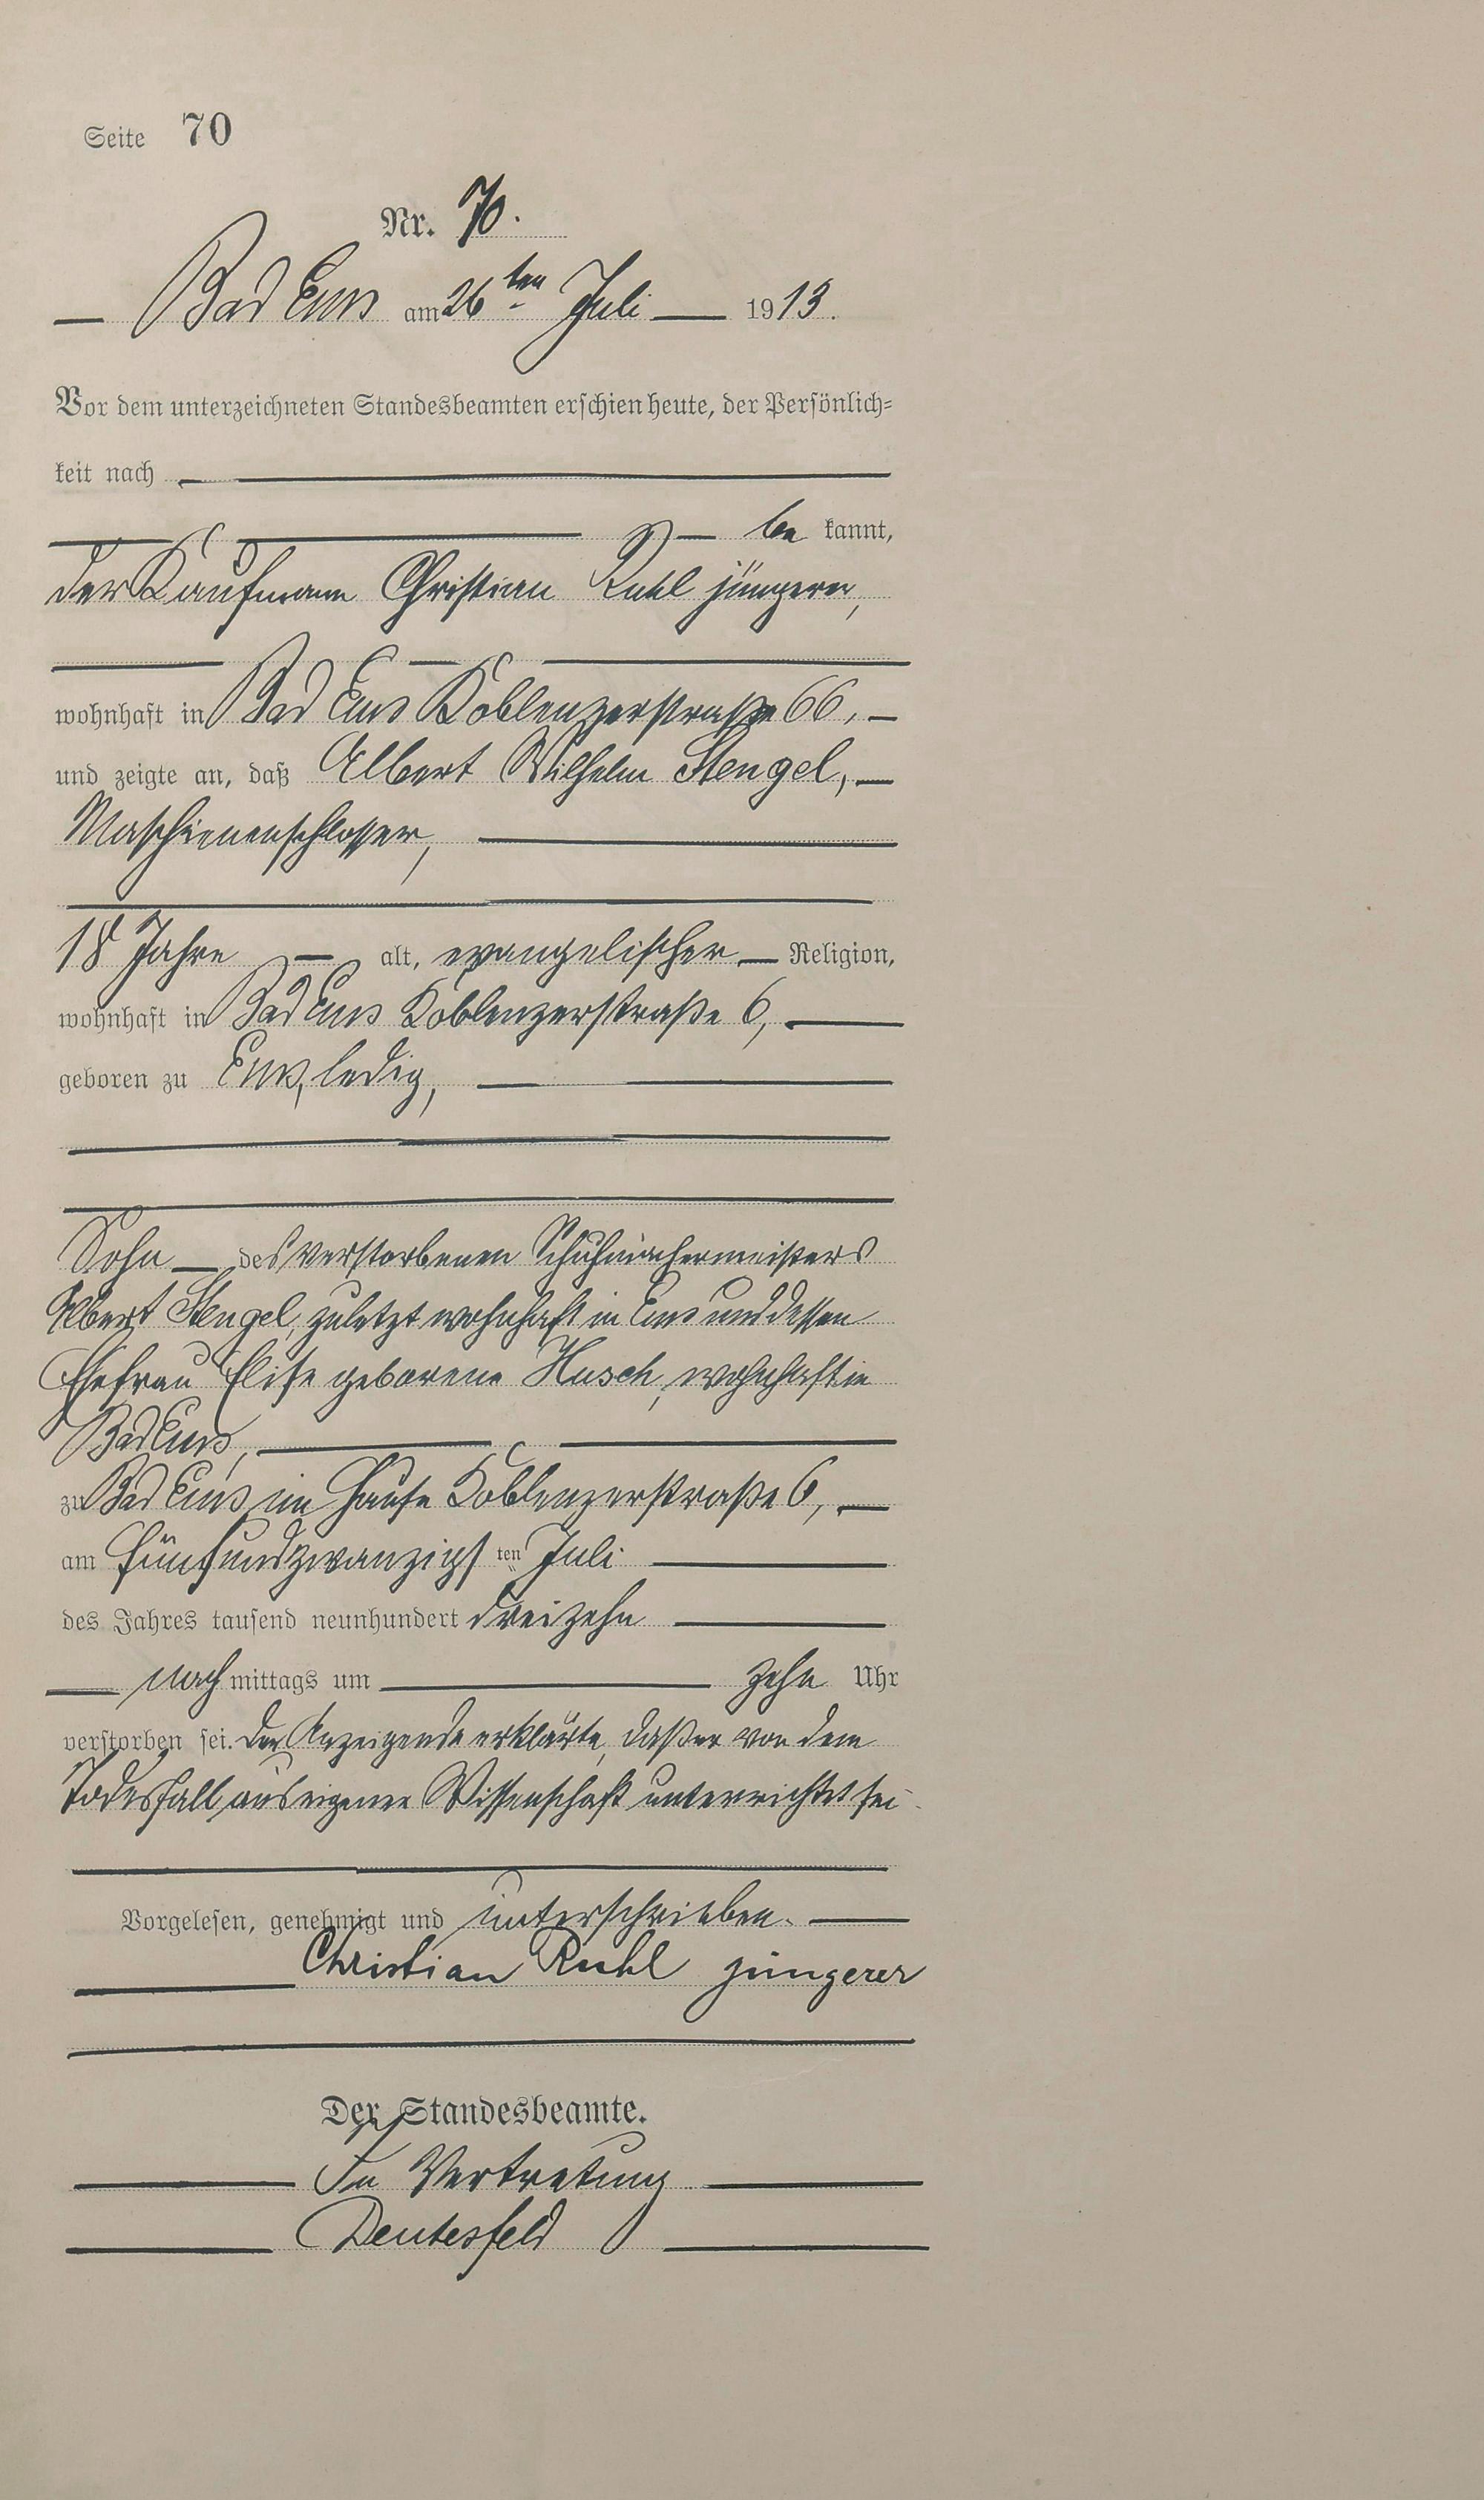 Seite 70
Nr. 70.
Bad Ems am 26ten Juli 1913.
Vor dem unterzeichneten Standesbeamten erschien heute, der Persönlich-
keit nach
be kannt,
der Kaufmann Christian Ruhl jüngerer,
wohnhaft in Bad Ems Koblenzerstraße 66,
und zeigte an, daß Albert Wilhelm Stengel,
Maschienenschlosser,
18 Jahre alt, evangelischer Religion,
wohnhaft in Bad Ems Koblenzerstraße 6,
geboren zu Ems, ledig,
Sohn des verstorbenen Schuhmachermeisters
Albert Stengel, zuletzt wohnhaft in Ems und dessen
Ehefrau Elise geborene Husch, wohnhaft in
Bad Ems,
zu Bad Ems im Hause Koblenzerstraße 6,
am fünfundzwanzigsten Juli
des Jahres tausend neunhundert dreizehn
nach mittags um zehn Uhr
verstorben sei. Der Anzeigende erklärte, daß er von dem
Todesfall aus eigener Wissenschaft unterrichtet sei.
Vorgelesen, genehmigt und unterschrieben.
Christian Ruhl jüngerer
Der Standesbeamte.
In Vertretung
Deutesfeld